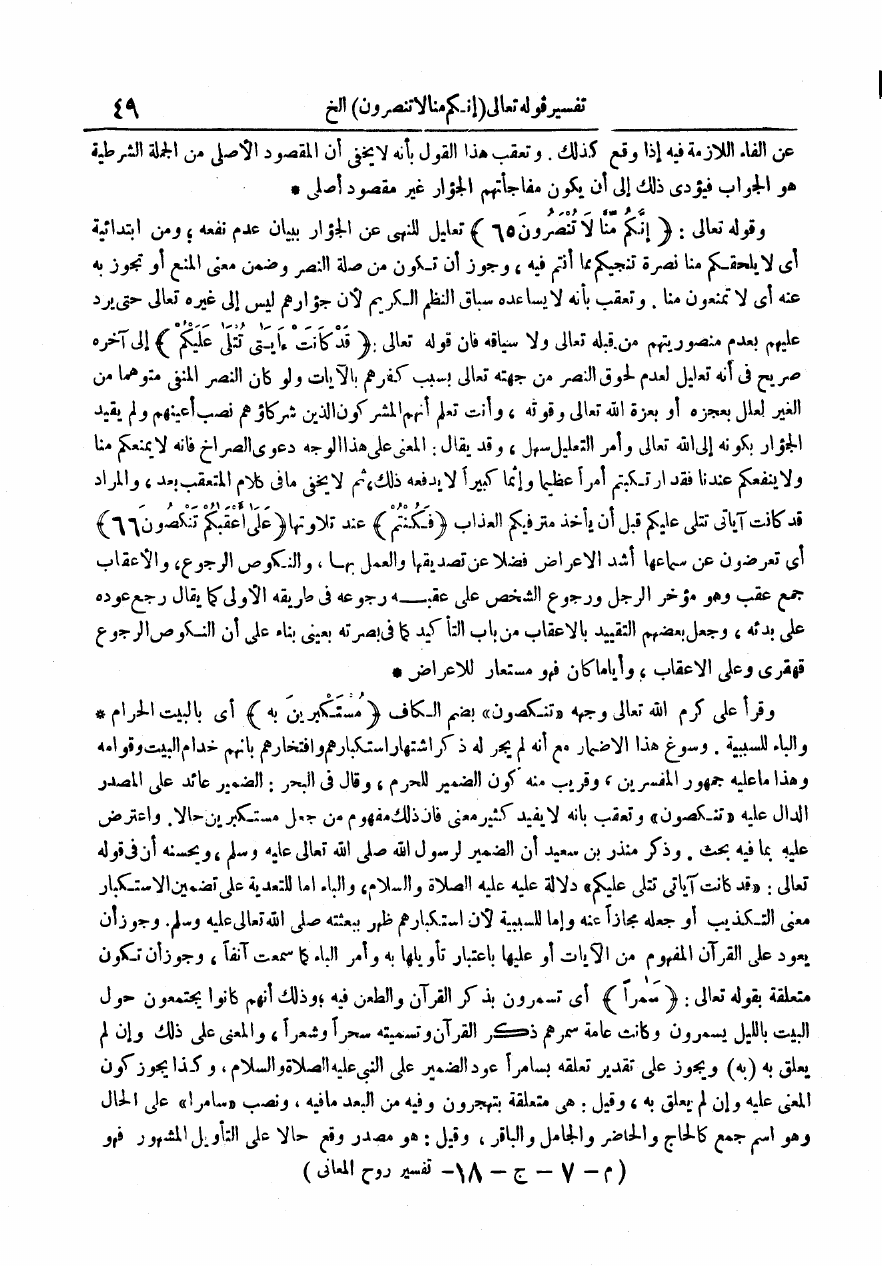 تفسير قوله تعالى (إنـكم منا لا تنصرون) الخ ٤٩
عن الفاء اللازمة فيه إذا وقع كذلك . وتعقب هذا القول بأنه لا يخفى أن المقصود الأصلى من الجملة الشرطية
هو الجواب فيؤدى ذلك إلى أن يكون مفاجأتهم الجؤار غير مقصود أصلى *
وقوله تعالى : ﴿ إِنَّكُم مِّنَّا لَا تُنْصَرُونَ ٦٥ ﴾ تعليل للنهى عن الجؤار ببيان عدم نفعه ؛ ومن ابتدائية
أى لا يلحقـكم منا نصرة تنجيكم مما أنتم فيه ، وجوز أن تـكون من صلة النصر وضمن معنى المنع أو تجوز به
عنه أى لا تمنعون منا . وتعقب بأنه لا يساعده سباق النظم الـكريم لأن جؤارهم ليس إلى غيره تعالى حتى يرد
عليهم بعدم منصوريتهم من قبله تعالى ولا سياقه فان قوله تعالى : ﴿ قَدْ كَانَتْ ءَايَـٰتِى تُتْلَىٰ عَلَيْكُمْ ﴾ إلى آخره
صريح فى أنه تعليل لعدم لحوق النصر من جهته تعالى بسبب كفرهم بالآيات ولو كان النصر المنفى متوهما من
الغير لعلل بعجزه أو بعزة الله تعالى وقوته ، وأنت تعلم أنهم المشركون الذين شركاؤهم نصب أعينهم ولم يقيد
الجؤار بكونه إلى الله تعالى وأمر التعليل سهل ، وقد يقال : المعنى على هذا الوجه دعوى الصراخ فانه لا يمنعكم منا
ولا ينفعكم عندنا فقد ارتـكبتم أمراً عظيما وإثما كبيراً لا يدفعه ذلك، ثم لا يخفى ما فى كلام المتعقب بعد ، والمراد
قد كانت آياتى تتلى عليكم قبل أن يأخذ مترفيكم العذاب ﴿ فَـكُنْتُمْ ﴾ عند تلاوتها ﴿ عَلَىٰ أَعْقَـٰبِكُمْ تَنْكِصُونَ ٦٦ ﴾
أى تعرضون عن سماعها أشد الاعراض فضلا عن تصديقها والعمل بهـا ، والنـكوص الرجوع، والأعقاب
جمع عقب وهو مؤخر الرجل ورجوع الشخص على عقبـــه رجوعه فى طريقه الأولى كما يقال رجع عوده
على بدئه ، وجعل بعضهم التقييد بالاعقاب من باب التأكيد كما فى بصرته بعينى بناء على أن النـكوص الرجوع
قهقرى وعلى الاعقاب ، وأياما كان فهو مستعار للاعراض *
وقرأ على كرم الله تعالى وجهه «تنـكصون» بضم الـكاف ﴿ مُسْتَـكْبِرِينَ بِهِ ﴾ أى بالبيت الحرام *
والباء للسببية . وسوغ هذا الاضمار مع أنه لم يجر له ذكر اشتهار استـكبارهم وافتخارهم بانهم خدام البيت وقوامه
وهذا ما عليه جمهور المفسرين ، وقريب منه كون الضمير للحرم ، وقال فى البحر : الضمير عائد على المصدر
الدال عليه «تنـكصون» وتعقب بانه لا يفيد كثير معنى فان ذلك مفهوم من جعل مستـكبرين حالا. واعترض
عليه بما فيه بحث . وذكر منذر بن سعيد أن الضمير لرسول الله صلى الله تعالى عليه وسلم ، ويحسنه أن فى قوله
تعالى : «قد كانت آياتى تتلى عليكم» دلالة عليه عليه الصلاة والسلام، والباء اما للتعدية على تضمين الاستـكبار
معنى التـكذيب أو جعله مجازاً عنه وإما للسببية لأن استـكبارهم ظهر ببعثته صلى الله تعالى عليه وسلم. وجوز أن
يعود على القرآن المفهوم من الآيات أو عليها باعتبار تأويلها به وأمر الباء كما سمعت آنفاً ، وجوز أن تـكون
متعلقة بقوله تعالى : ﴿ سَـٰمِراً ﴾ أى تسمرون بذكر القرآن والطعن فيه ؛ وذلك أنهم كانوا يجتمعون حول
البيت بالليل يسمرون وكانت عامة سمرهم ذكـــر القرآن وتسميته سحراً وشعراً ، والمعنى على ذلك وإن لم
يعلق به (به) ويجوز على تقدير تعلقه بسامراً عود الضمير على النبى عليه الصلاة والسلام ، وكذا يجوز كون
المعنى عليه وإن لم يعلق به ، وقيل : هى متعلقة بتهجرون وفيه من البعد مافيه ، ونصب «سامرا» على الحال
وهو اسم جمع كالحاج والحاضر والجامل والباقر ، وقيل : هو مصدر وقع حالا على التأويل المشهور فهو
( م – ٧ – ج – ١٨ – تفسير روح المعانى )